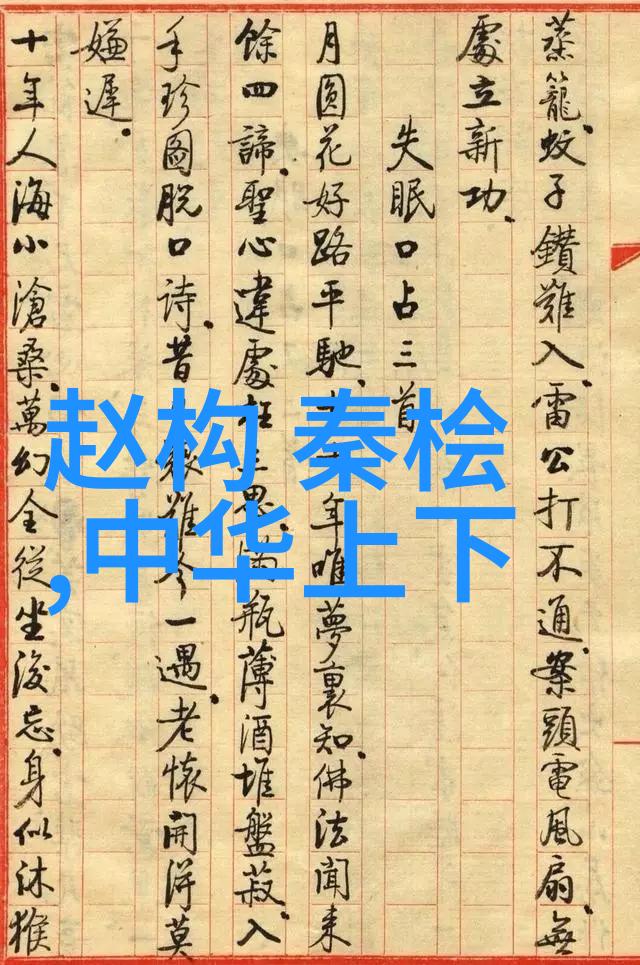 蒸籠。蚊子鑽難入。雷公打不通。案頭電風扇。無
處立新功。
失眠口占三首
月圓花好路平馳。年唯夢裏知。佛法聞來
餘四諦。聖心違處三思瓶薄酒堆盤菽。入
手珍圖脫口詩。昔難今一遇。老懷開得莫
嫌遲。
十年人海小滄桑。萬幻全從坐後忘。身似沐猴
赵构 秦桧
,中华上下